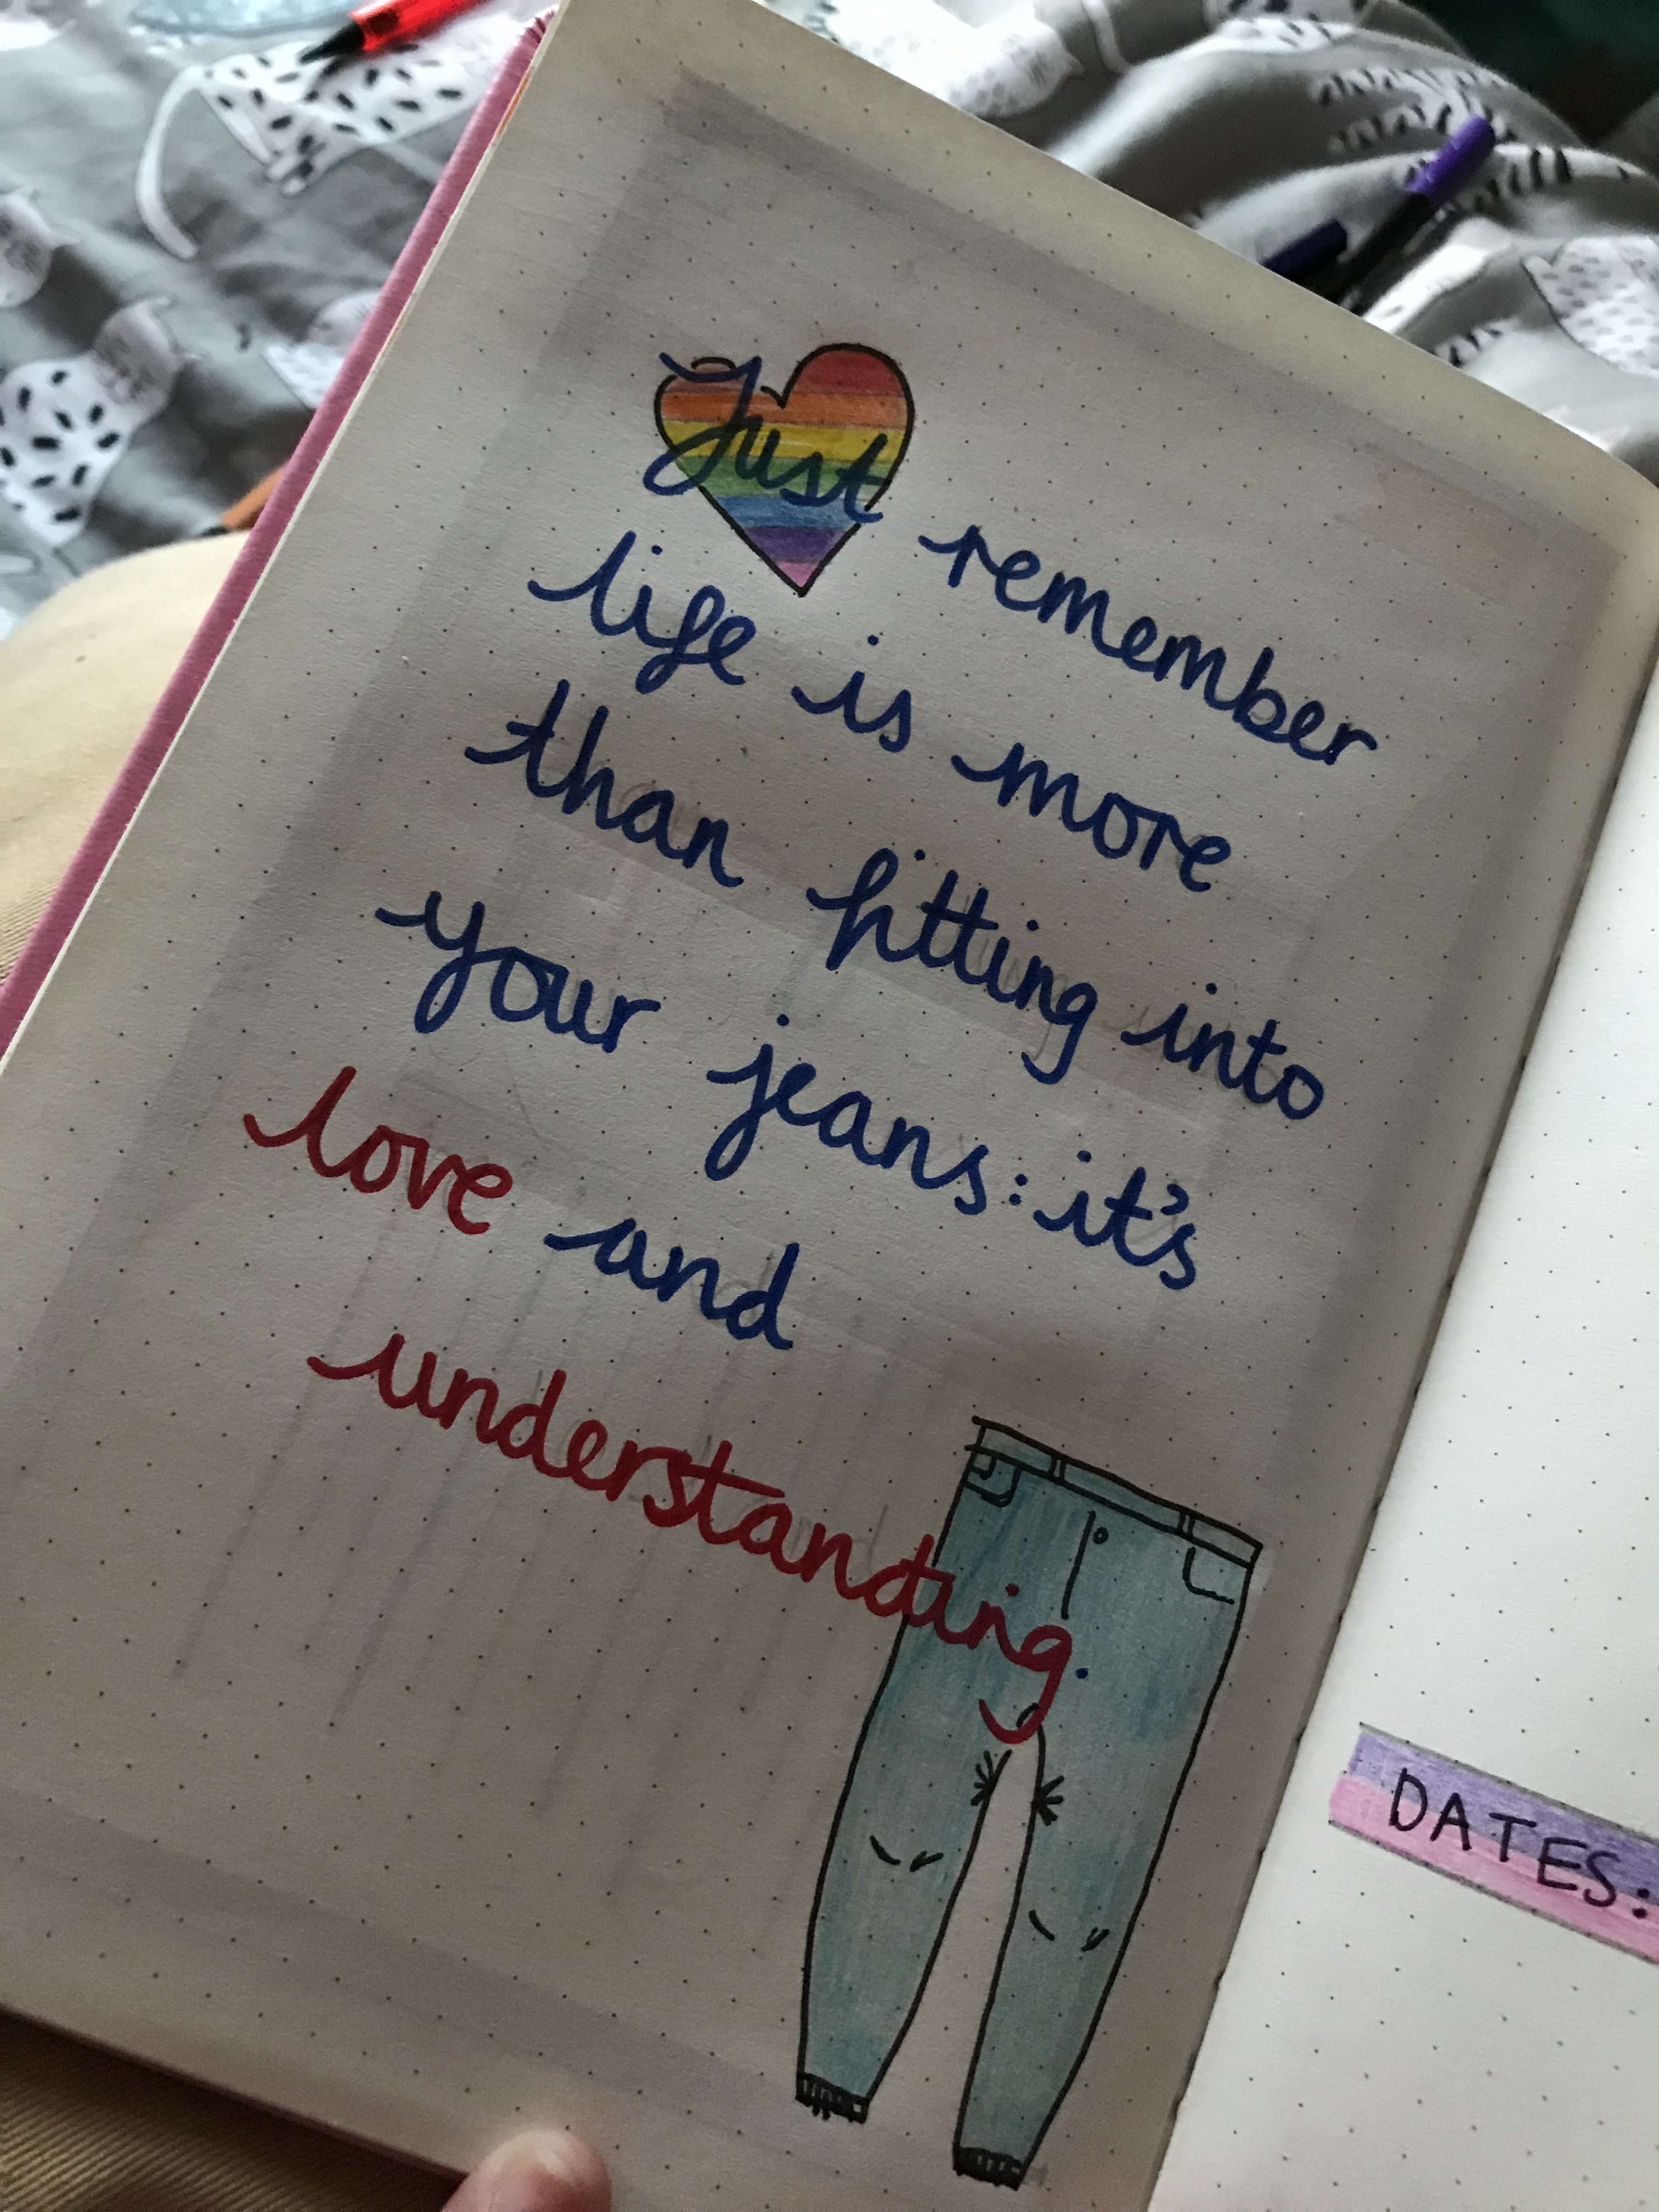 Just remember
life is more
than fitting into
your jeans: it's
love and
understanding.
DATES: